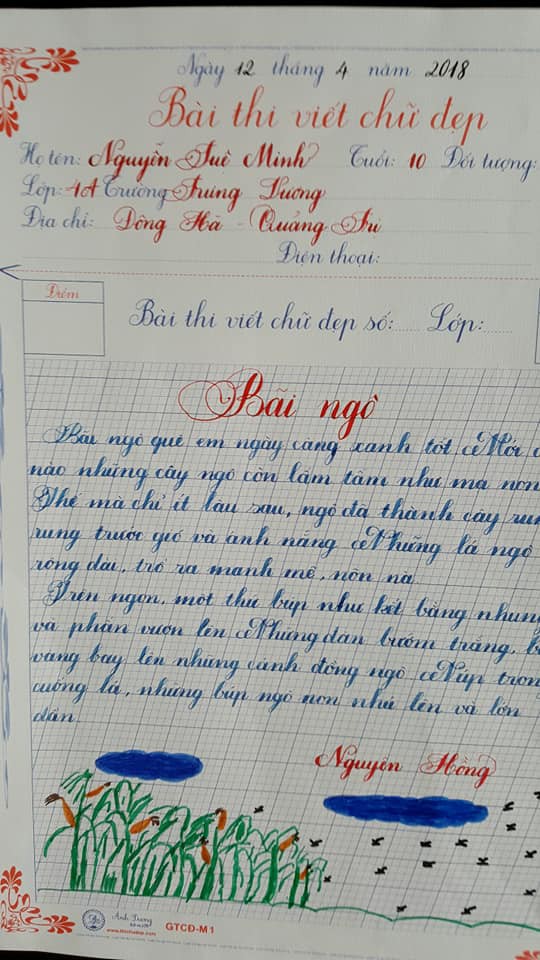 Ngày 12 tháng 4 năm 2018
Bài thi viết chữ đẹp
Họ tên: Nguyễn Tuệ Minh Tuổi: 10 Đối tượng:
Lớp: 4A Trường Trưng Vương
Địa chỉ: Đông Hà - Quảng Trị
Điện thoại:
Điểm
Bài thi viết chữ đẹp số: Lớp:
Bãi ngô
Bãi ngô quê em ngày càng xanh tốt. Mới
nào những cây ngô còn lấm tấm như mạ non
Thế mà chỉ ít lâu sau, ngô đã thành cây
rung trước gió và ánh nắng. Những lá ngô
rộng dài, trổ ra mạnh mẽ, nõn nà
Trên ngọn, một thứ búp như kết bằng nhung
và phấn vươn lên. Những đàn bướm trắng,
vàng bay lên những cánh đồng ngô. Núp
cuống lá, những búp ngô non nhú lên và lớn
dần
Nguyên Hồng
Ánh Dương
GTCĐ-M1